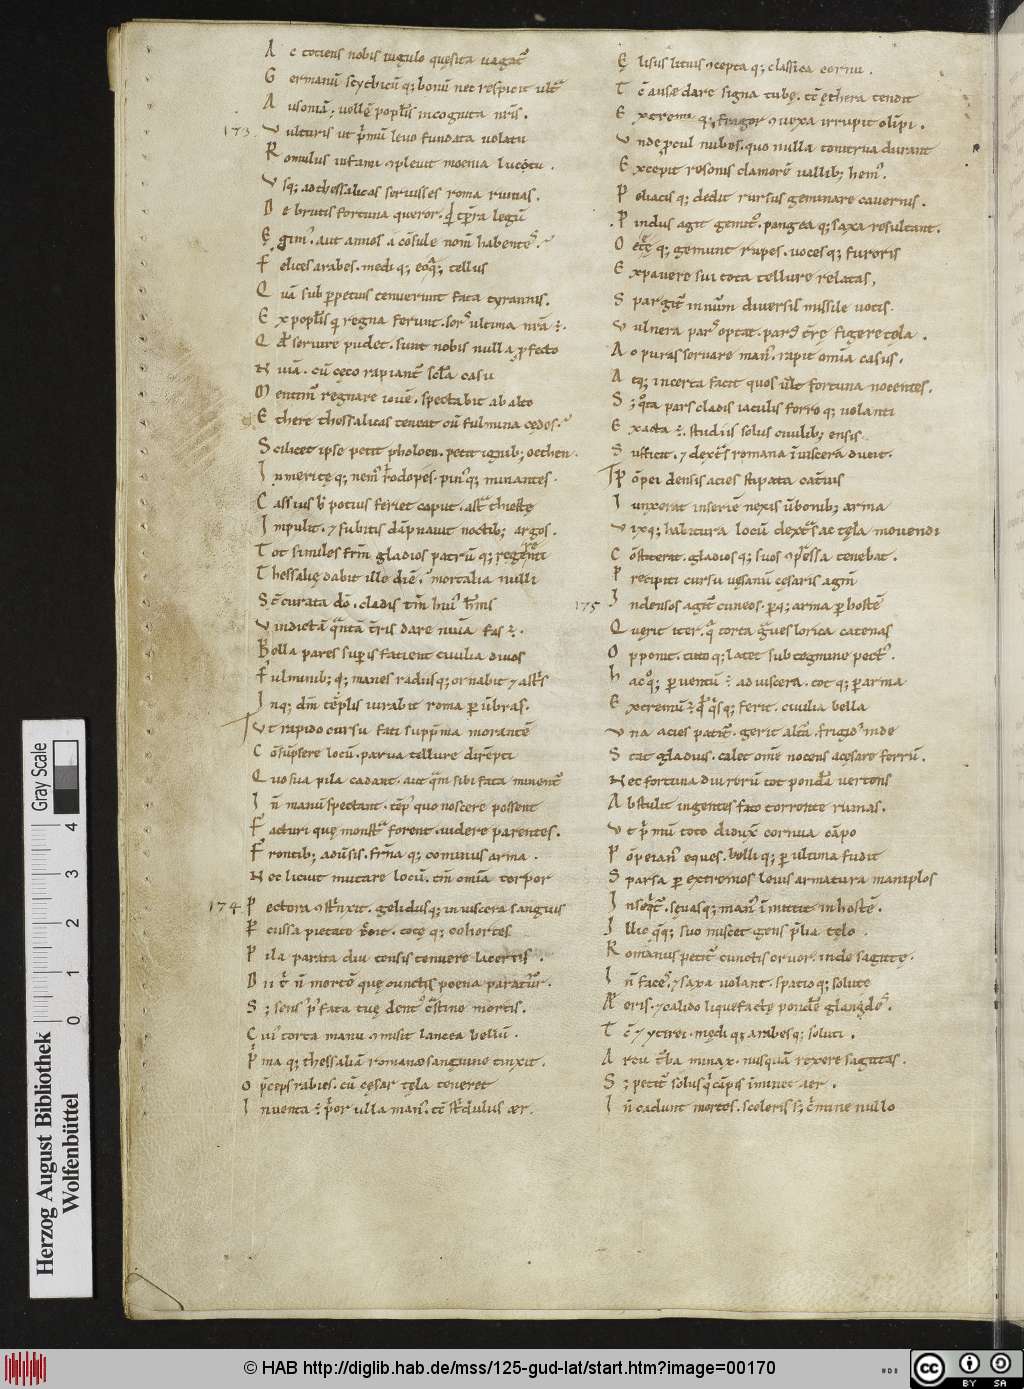 A c tociens nobis iugulo quesita uagat᷑
G ermanū scythicū q; bonū nec respicit ult᷑
A usoniā; uellē popl̄is incognita nr̄is.
173. V ulturis ut p̄mū leuo fundata uolatu
R omulus infami ꝯpleuit moenia luco
V sq; ad thessalicas seruisses roma ruinas.
D e brutis fortuna queror. qd̄ tp̄ra legū
E gim᷒. aut annos a cōsule nom̄ habentes
F elices arabes. mediq; eoaq; tellus
Q uā sub ꝑpetuis tenuerunt fata tyrannis.
E x popl̄is q regna ferunt. sors ultima nr̄a ē.
Q d̄ seruire pudet. sunt nobis nulla ꝓfecto
N umina. cū ceco rapiant᷑ scl̄a casu
M entim᷒ regnare iouē. spectabit ab alto
E there thessalicas teneat cū fulmina cedes.
S cilicet ipse petit pholoen. petit ignib; oethen.
I nmeriteq; nem᷒ rodopes. pinusq; minantes.
C assius h̄ potius feriet caput. astra thieste
I mpulit. ⁊ subitis dāpnauit noctib; argos.
T ot similes frm̄ gladios patrū q; gerenti
T hessalie dabit ille diē. mortalia nulli
S t̄ curata dō. cladis tm̄ hui᷒ hēms
V indictā qntā t̄ris dare numina fas ē.
B ella pares supis facient ciuilia diuos
F ulminib; q; manes radiisq; ornabit ⁊ astris
I nq; dm̄ tēplis iurabit roma ꝑ ūbras.
V t rapido cursu fati supp̄ma morantē
C ōsūpsere locū. parua tellure dirēpti
Q uo sua pila cadant. aut qm̄ sibi fata minent᷑
I n̄ manū spectant. tēp᷒ quo noscere possent
F acturi que monstra forent. uidere parentes.
F rontib; aduersis. fr̄na q; cominus arma.
N ec licuit mutare locū. tm̄ omīa torpor
174. P ectora ꝯstrinxit. gelidusq; in uiscera sanguis
P cussa pietate coit. tote q; cohortes
P ila parata diu tensis tenuere lacertis.
D ii t᷑ n̄ mortē que cunctis poena parat᷑.
S ; sensū p᷒ fata tue dent᷑ crastine mortis.
C ui᷒ torta manu ꝯmisit lancea bellū.
P᷑ma q; thessaliā romano sanguine tinxit.
O p̄ceps rabies. cū cesar tela teneret
I nuenta ē p̄or ulla man᷒. tc̄ stridulus aer.
E lisus lituis ꝯcepta q; classica cornu.
T c̄ ause dare signa tube. tc̄ ethera tendit
E xtremi q; fragor ꝯuexa irrupit olimpi.
V nde ꝓcul nubes. quo nulla tonitrua durant
E xcepit resonis clamorē uallib; hem᷒.
P eliacis q; dedit rursus geminare cauernis.
P indus agit gemit᷒. pangeaq; saxa resultant.
O etēę q; gemunt rupes. uoces q; furoris
E xpauere sui tota tellure relatas,
S pargit᷑ in nūm diuersis missile uotis.
V ulnera pars optat. pars t̄re figere tela.
A c puras seruare man᷒. rapit omīa casus.
A tq; incerta facit quos uult fortuna nocentes.
S ; qota pars cladis iaculis ferro q; uolanti
E xacta ē. studiis solus ciuilib; ensis
S ufficit. ⁊ dextras romana ī uiscera ducit.
P ōpei densis acies stipata cateruis
I unxerat in seriē nexis ūbonib; arma
V ixq; habitura locū dextras ac tela mouendi
C ōstiterat. gladiosq; suos ꝯp̄ssa tenebat.
P recipiti cursu uesanū cesaris agm̄
175. I ndensos agit᷑ cuneos. ꝑq; arma ꝑ hostē
Q uerit iter. q torta graues lorica catenas
O pponit. tutoq; latet sub tegmine pect᷒.
H ac q̊q; ꝑuentū ē ad uiscera. tot q; ꝑ arma
E xtremū ē qd̄ qisq; ferit. ciuilia bella
V na acies patit᷑. gerit altā. frigid᷒ inde
S tat gladius. calet omē nocens a cesare ferrū.
N ec fortuna diu rerū tot pondera uertens
A bstulit ingentes fato torrente ruinas.
V t p̄mū toto diduxit cornua cāpo
P ōpeian᷒ eques. belliq; ꝑ ultima fudit
S parsa ꝑ extremos leuis armatura maniplos
I nseqit᷑. seuasq; man᷒ īmittit in hostē.
I llic qq; suo miscet gens p̄lia telo.
R omanus petit᷑ cunctis cruor. inde sagitte.
I n̄ faces. ⁊ saxa uolant. spatioq; solute
A eris. ⁊ calido liquefacte pondere glandes.
T c̄ ⁊ ytirei. mediq; arabesq; soluti.
A rcu t̄ba minax. nusquā rexere sagittas.
S ; petit᷑ solus q cāpis īminet aer.
I n̄ cadunt mortes. sceleris s; crimine nullo
Herzog August Bibliothek
Wolfenbüttel
Gray Scale
0 1 2 3 4
© HAB http://diglib.hab.de/mss/125-gud-lat/start.htm?image=00170
CC BY SA